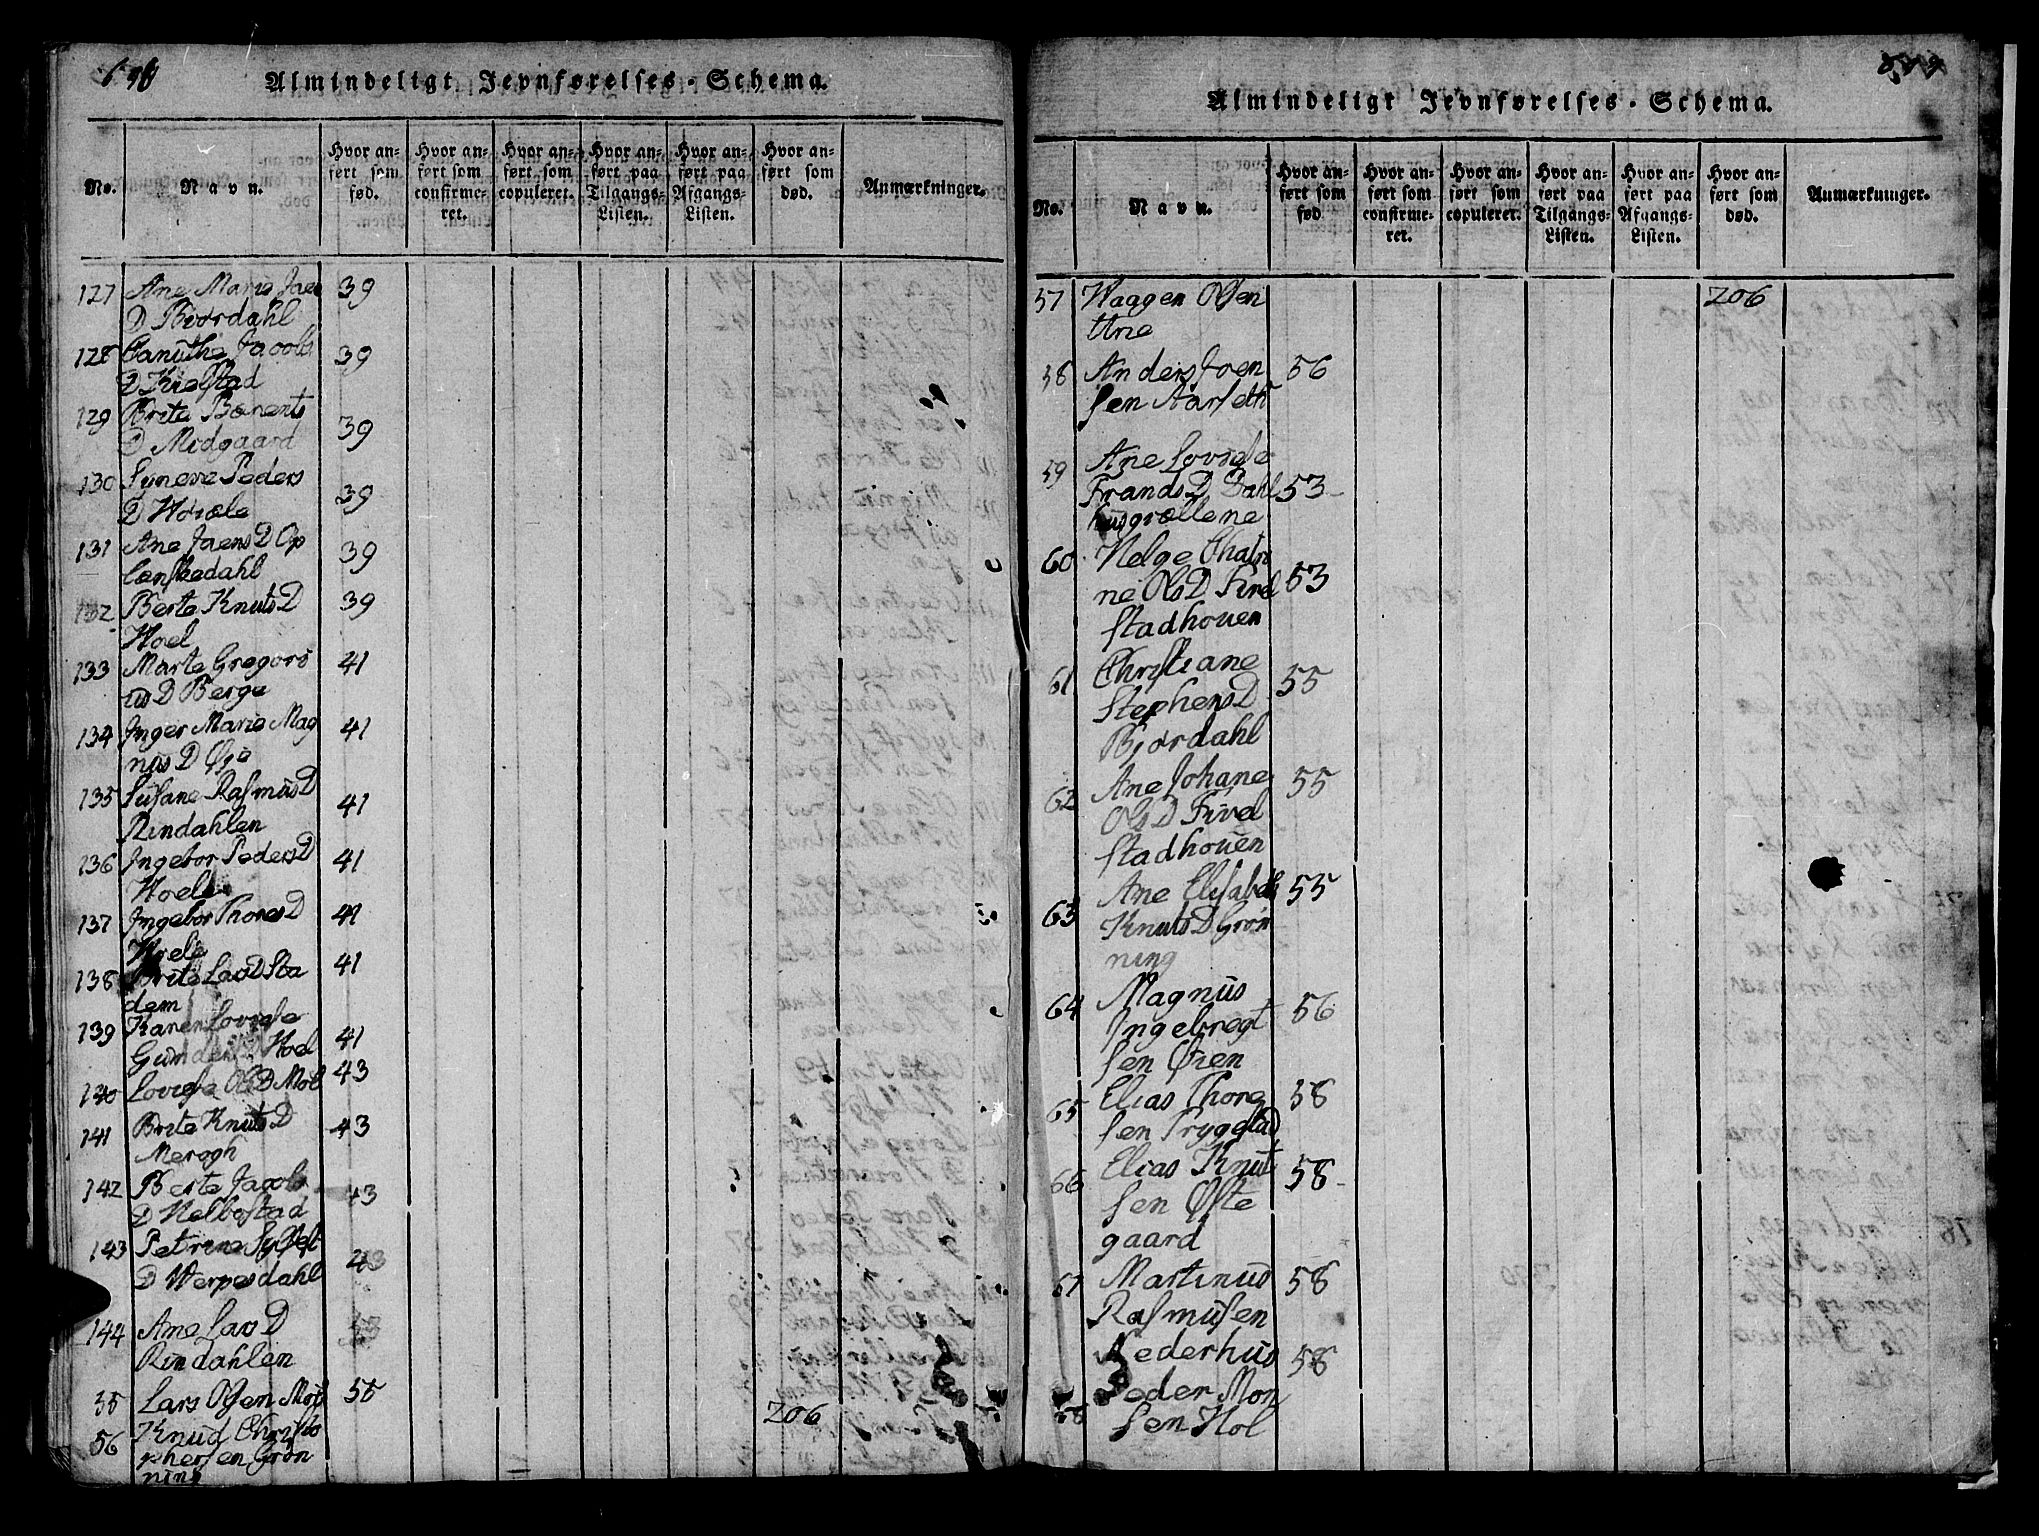 Almindeligt Jevnførelses-Schema.
No. Navn. Hvor anført som fød. Hvor anført som confirmeret. Hvor anført som copuleret. Hvor anført paa Tilgangs-Listen. Hvor anført paa Afgangs-Listen. Hvor anført som død. Anmærkninger.
127 Ane Marie Jaco 39
D Biordahl
128 Canutha Jacobs 39
D Kielstad
129 Brite Bærents 39
D Midgaard
130 Syneve Peders 39
D Hoxæle
131 Ane Jaens D Op 39
lænskedahl
132 Berte Knuts D 39
Hoel
133 Marte Gregori 41
us D Berge
134 Inger Marie Mag 41
nus D Øye
135 Susane Rasmus D 41
Rindahlen
136 Ingebor Peders D 41
Hoele
137 Ingebor Thores D 41
Hoele
138 Brite Lars D Sta 41
dem
139 Karen Lovise 41
Gunders D Hoel
140 Lovise Ols D Mol 43
141 Brite Knuts D 43
Merogh
142 Berte Jacobs 43
D Helbostad
143 Petrine Sylfest 43
D Herpesdahl
144 Ane Lars D 43
Rindahlen
55 Lars Olsen Mol 55
56 Knud Christo 206
phersen Grøn
ning
Almindeligt Jevnførelses-Schema.
No. Navn. Hvor anført som fød. Hvor anført som confirmeret. Hvor anført som copuleret. Hvor anført paa Tilgangs-Listen. Hvor anført paa Afgangs-Listen. Hvor anført som død. Anmærkninger.
57 Haagen Olsen 206
Urie
58 Anders Joen 56
sen Aarseth
59 Ane Lovise
Frands D Dahl 53
husgiællene
60 Helge Chatri
ne Ols D Fivel 53
stadhouen
61 Christiane 55
Stephens D
Bjordahl
62 Ane Johane 55
Ols D Fivel
stadhouen
63 Ane Elisabeth 55
Knuts D Grøn
ning
64 Magnus 56
Ingebregt
sen Øien
65 Elias Thore 58
sen Prygstad
66 Elias Knut 58
sen Øste
gaard
67 Martinus 58
Rasmusen
Nederhus 58
68 Peder Mon
sen Hol